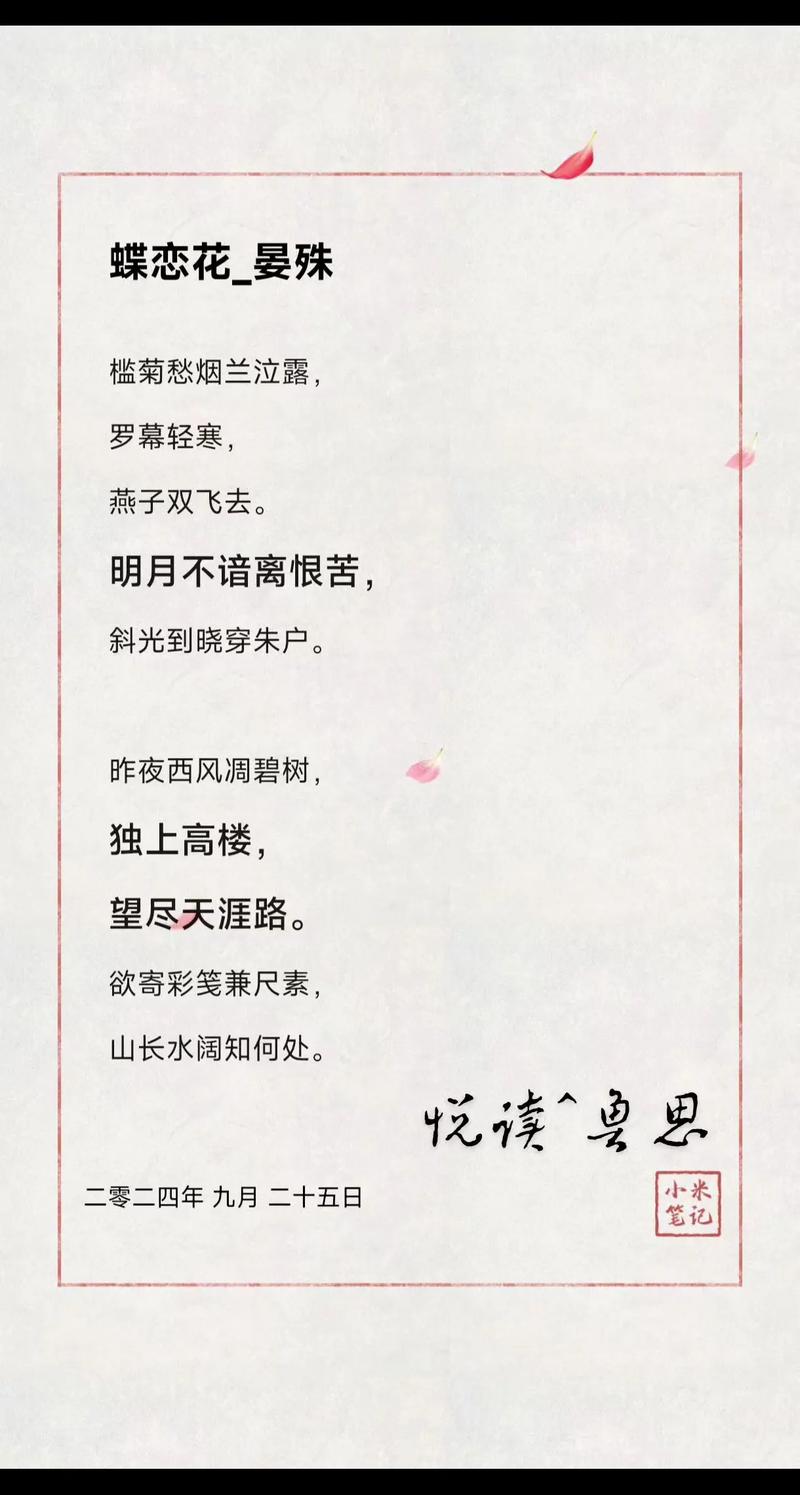 蝶恋花_晏殊
槛菊愁烟兰泣露，
罗幕轻寒，
燕子双飞去。
明月不谙离恨苦，
斜光到晓穿朱户。
昨夜西风凋碧树，
独上高楼，
望尽天涯路。
欲寄彩笺兼尺素，
山长水阔知何处。
悦读^鲁思
二零二四年 九月 二十五日
小米
笔记